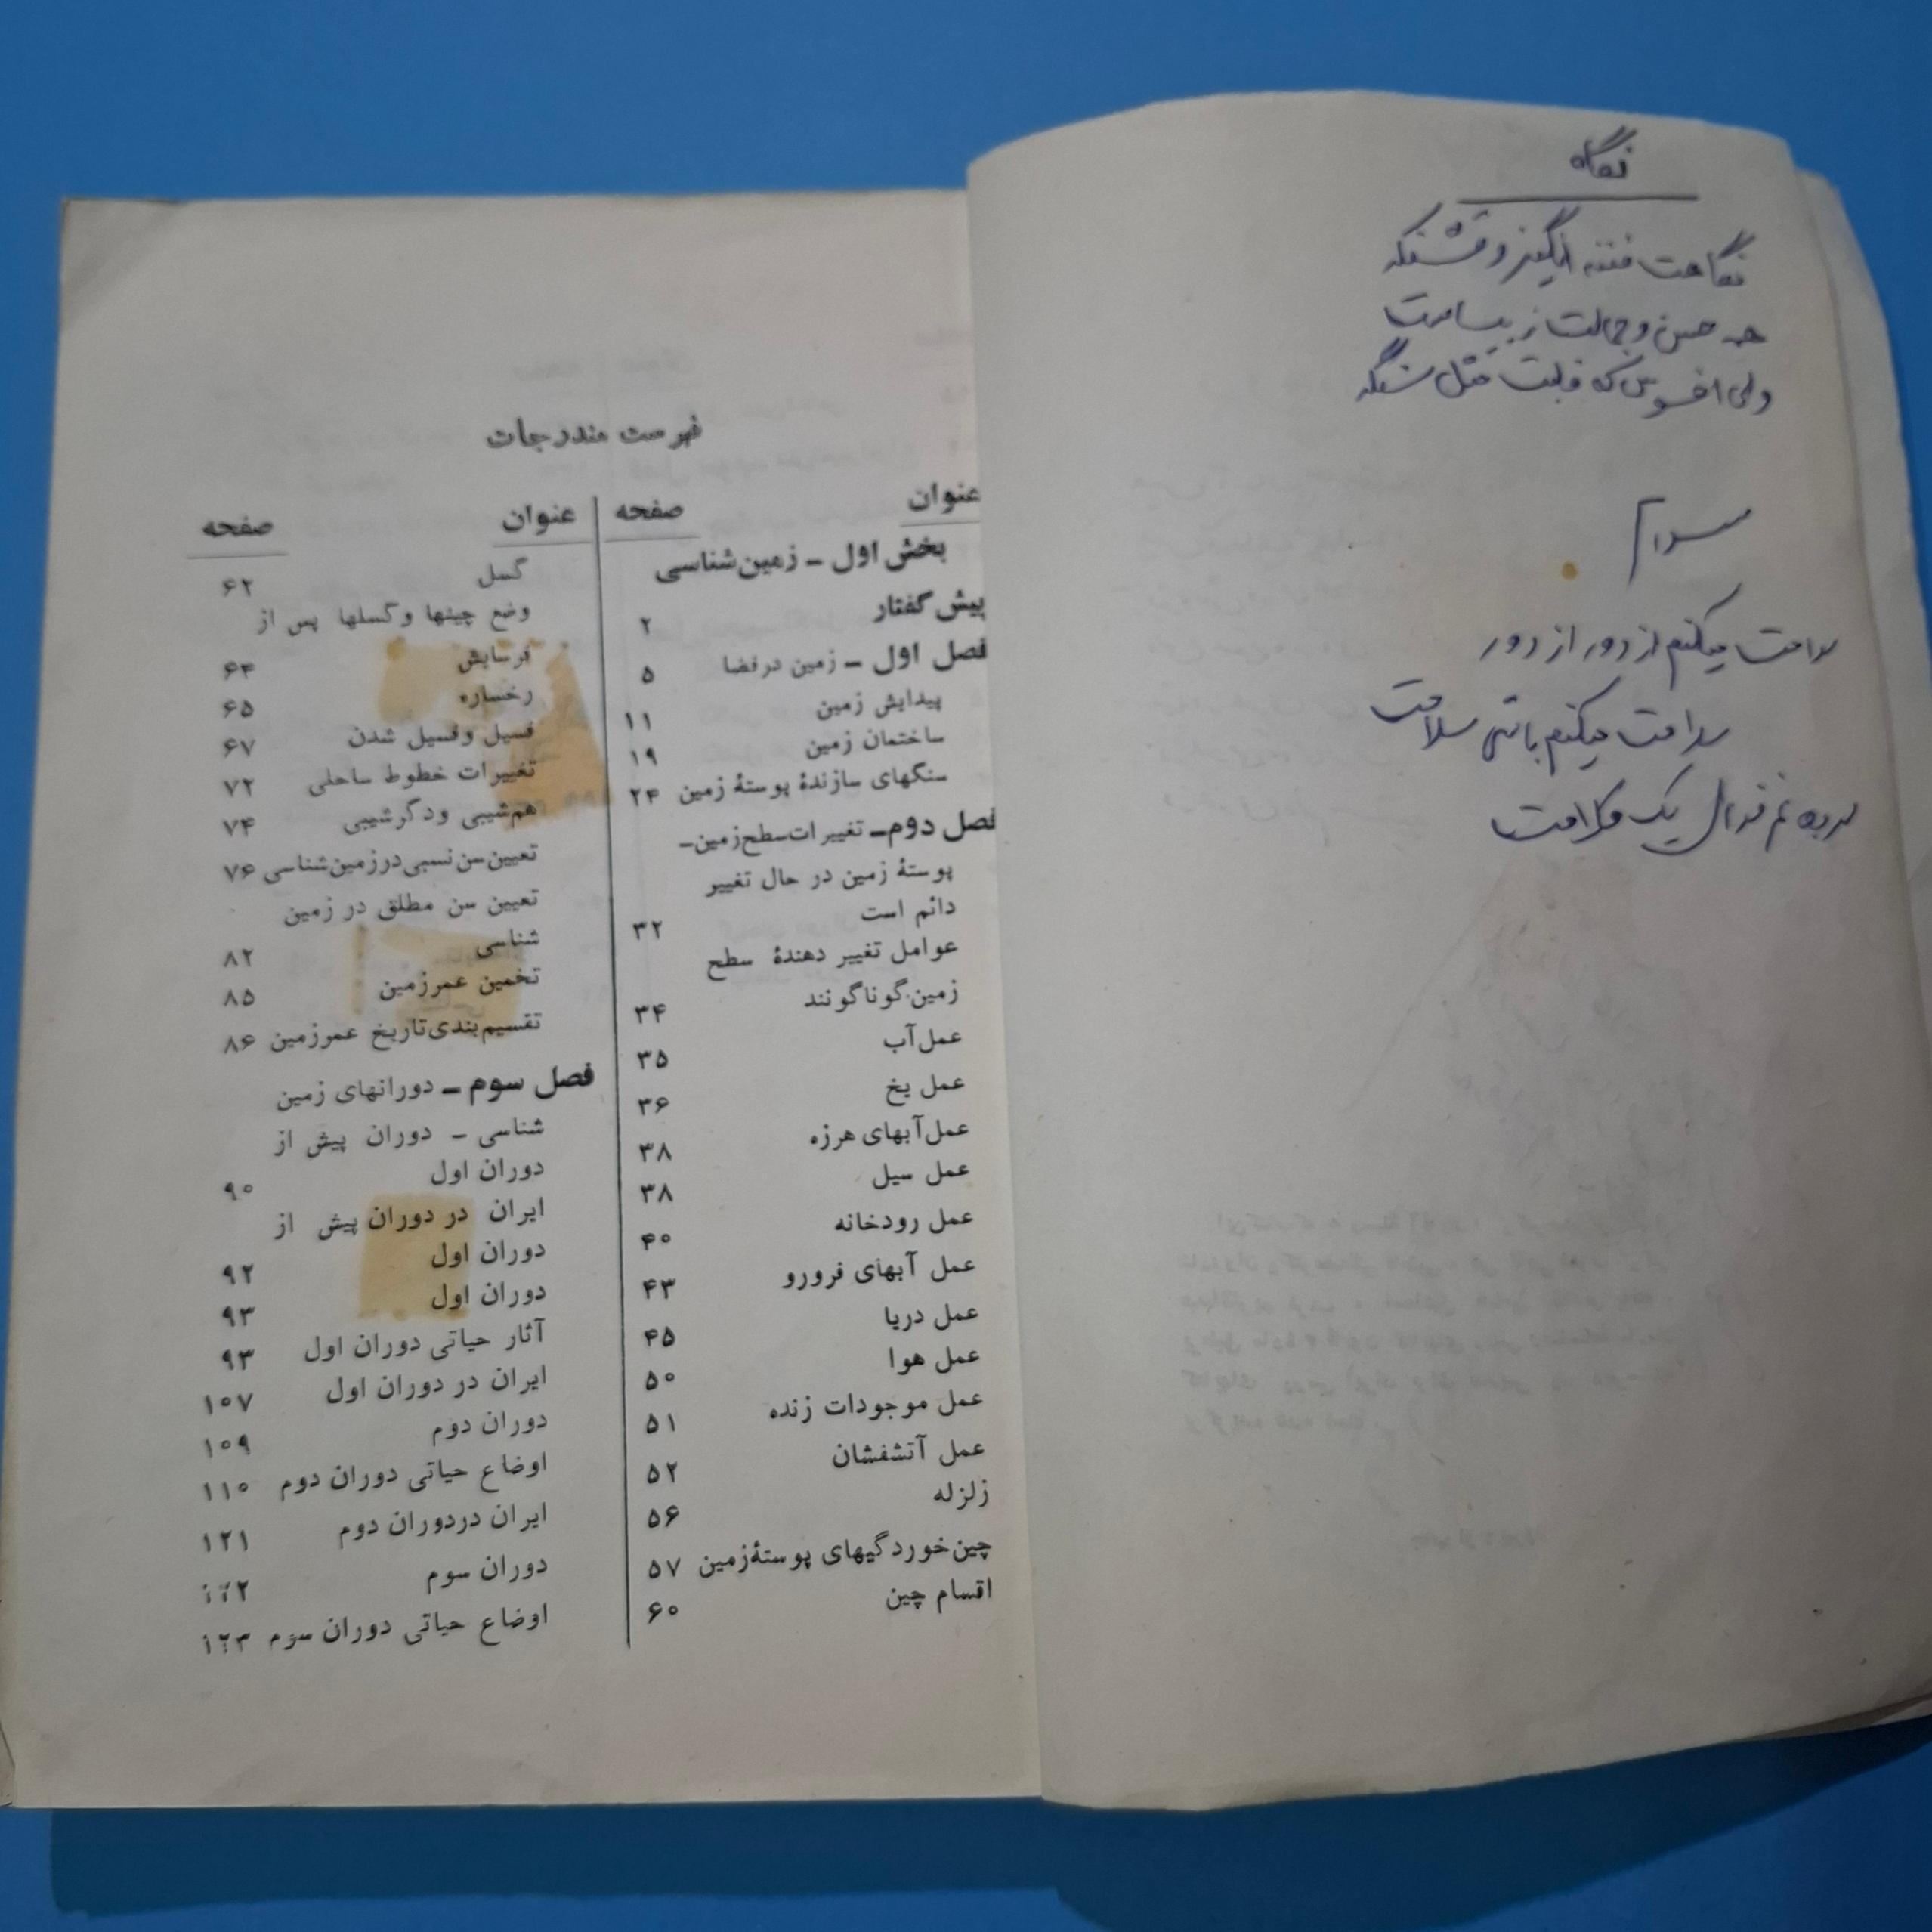 نگاه
نگاهت فتنه انگیز و قشنگه
همه حسن و جمالت زیب
ولی افسوس که قلبت مثل سنگه
سلام
سلامت میکنم از دور از دور
سلامت میکنم باشی سلامت
غم
فهرست مندرجات
عنوان صفحه
بخش اول - زمین‌شناسی
پیش گفتار ۲
فصل اول - زمین در فضا ۵
پیدایش زمین ۱۱
ساختمان زمین ۱۹
سنگهای سازندهٔ پوستهٔ زمین ۲۴
فصل دوم- تغییرات سطح زمین-
پوستهٔ زمین در حال تغییر
دائم است ۳۲
عوامل تغییر دهندهٔ سطح
زمین گوناگونند ۳۴
عمل آب ۳۵
عمل یخ ۳۶
عمل آبهای هرزه ۳۸
عمل سیل ۳۸
عمل رودخانه ۴۰
عمل آبهای فرورو ۴۳
عمل دریا ۴۵
عمل هوا ۵۰
عمل موجودات زنده ۵۱
عمل آتشفشان ۵۲
زلزله ۵۶
چین‌خوردگیهای پوستهٔ زمین ۵۷
اقسام چین ۶۰
عنوان صفحه
گسل ۶۲
وضع چینها و گسلها پس از
فرسایش ۶۴
رخساره ۶۵
فسیل و فسیل شدن ۶۷
تغییرات خطوط ساحلی ۷۲
هم‌شیبی و دگرشیبی ۷۴
تعیین سن نسبی در زمین‌شناسی ۷۶
تعیین سن مطلق در زمین
شناسی ۸۲
تخمین عمر زمین ۸۵
تقسیم‌بندی تاریخ عمر زمین ۸۶
فصل سوم - دورانهای زمین
شناسی - دوران پیش از
دوران اول ۹۰
ایران در دوران پیش از
دوران اول ۹۲
دوران اول ۹۳
آثار حیاتی دوران اول ۹۳
ایران در دوران اول ۱۰۷
دوران دوم ۱۰۹
اوضاع حیاتی دوران دوم ۱۱۰
ایران در دوران دوم ۱۲۱
دوران سوم ۱۲۲
اوضاع حیاتی دوران سوم ۱۲۳